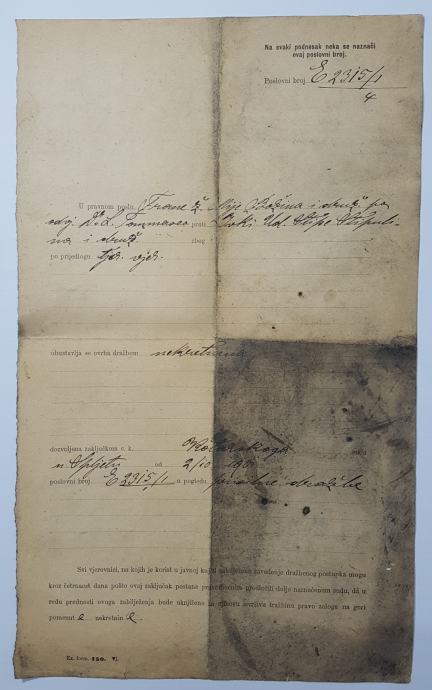 Na svaki podnesak neka se naznači
ovaj poslovni broj.
Poslovni broj E 2315/1
4
U pravnom poslu Frane ž. Mije i druž. po
odv. Dr L. Tommaseo proti Ud. Stipe
na i druž. zbog
po prijedlogu
obustavlja se ovrha dražbom nekretnina
dozvoljena zaključkom c. k. Kotarskoga suda
u Spljetu od 2/10
poslovni broj E 2315/1 u pogledu dražbe
Svi vjerovnici, na kojih je korist u javnoj zabilježeno zavedenje dražbenog postupka mogu
kroz četrnaest dana pošto ovaj zaključak postane dolje naznačenom sudu, da u
redu prednosti ovoga zabilježenja bude uknjiženo za njihovu ovršivu tražbinu pravo zaloga na gori
pomenut e nekretnin e.
Ex. form. 150. Vj.